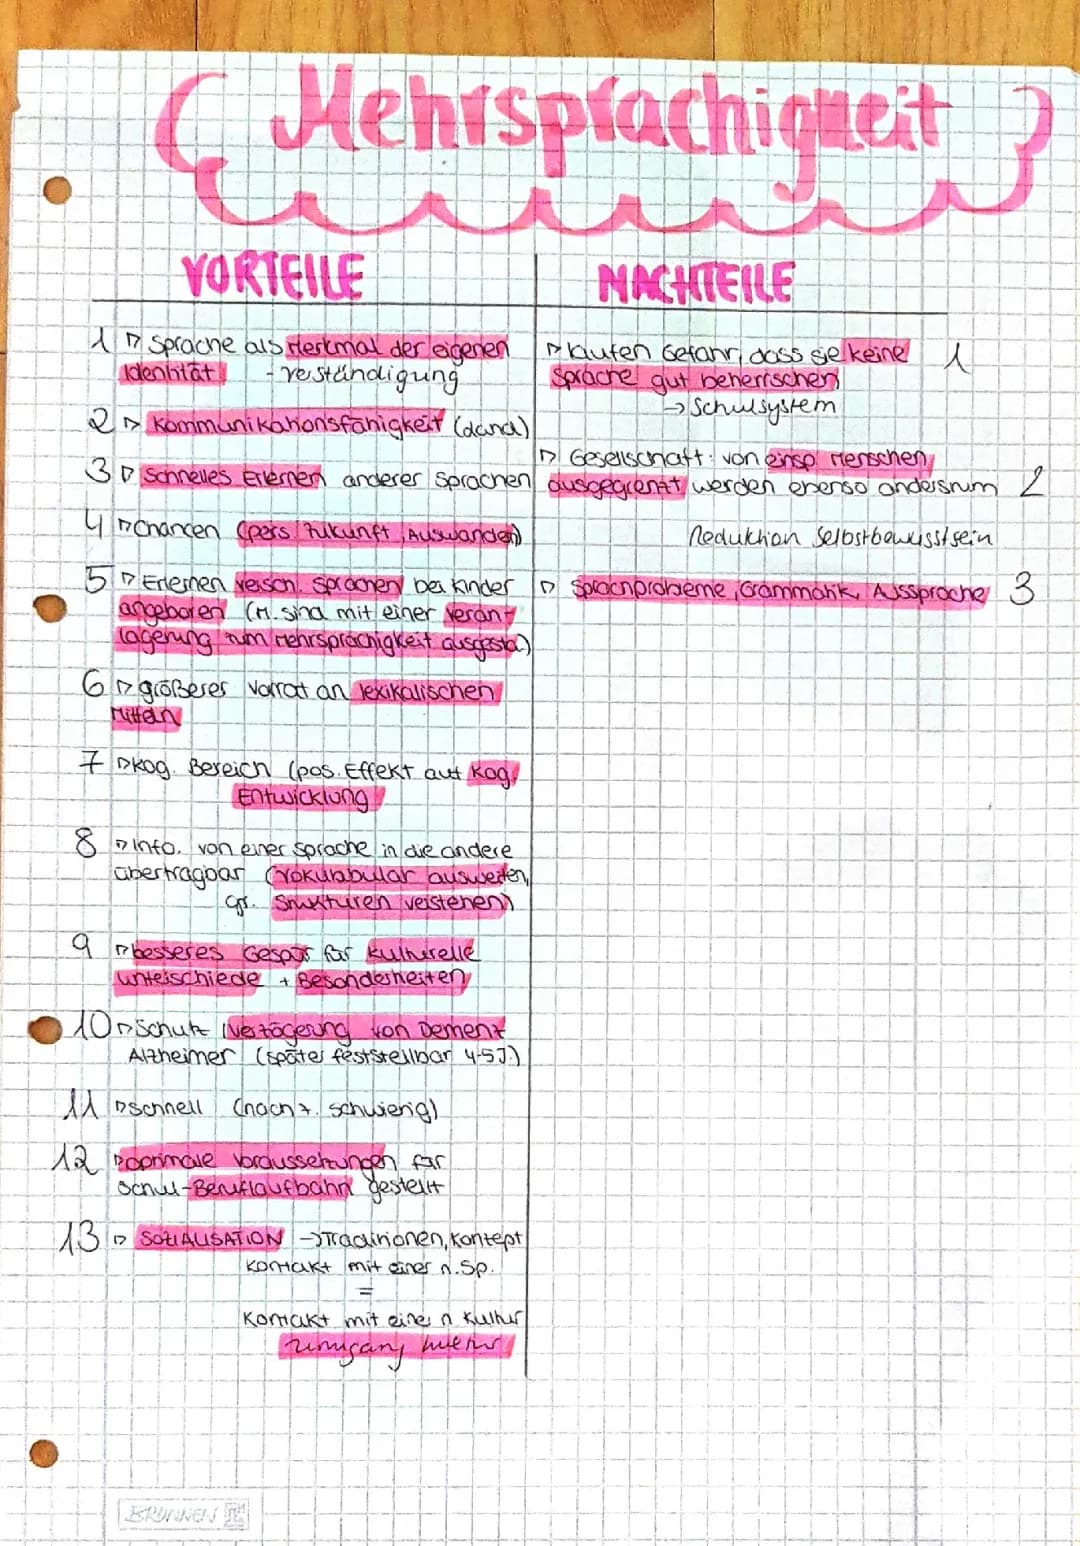 Mehrsprachigkeit
VORTEILE
NACHTEILE
1 ▷ Sprache als Merkmal der eigenen
Identität - verständigung
2 ▷ Kommunikationsfähigkeit (dand)
3 ▷ Schnelles Erlernen anderer Sprachen
4 ▷ Chancen (pers Zukunft, Auswandern)
5 ▷ Erlernen versch. Sprachen bei Kinder
angeboren (M. sind mit einer Veran-
lagerung zum Mehrsprachigkeit ausgesta.)
6 ▷ größeres Vorrat an lexikalischen
Mitteln
7 ▷ kog. Bereich (pos. Effekt auf kog.
Entwicklung
8 ▷ Info. von einer Sprache in die andere
übertragbar (Vokubabular ausweiten,
gr. Strukturen verstehen)
9 ▷ besseres Gespür für kulturelle
unterschiede + Besonderheiten
10 ▷ Schutz / Verzögerung von Demenz
Alzheimer (später feststellbar 4-5J.)
11 ▷ schnell (nach z. schwierig)
12 ▷ optimale Voraussetzungen für
Schul-Beruflaufbahn gestellt
13 ▷ SOZIALISATION → Traditionen, Kontept
Kontakt mit einer n. Sp.
=
Kontakt mit einer n Kultur
▷ laufen Gefahr, dass sie keine 1
Sprache gut beherrschen
→ Schulsystem
▷ Gesellschaft: von einsp Menschen
ausgegrenzt werden ebenso andersrum 2
Reduktion Selbstbewusstsein
▷ Sprachprobeme, Grammatik, Aussprache 3
BRUNNEN